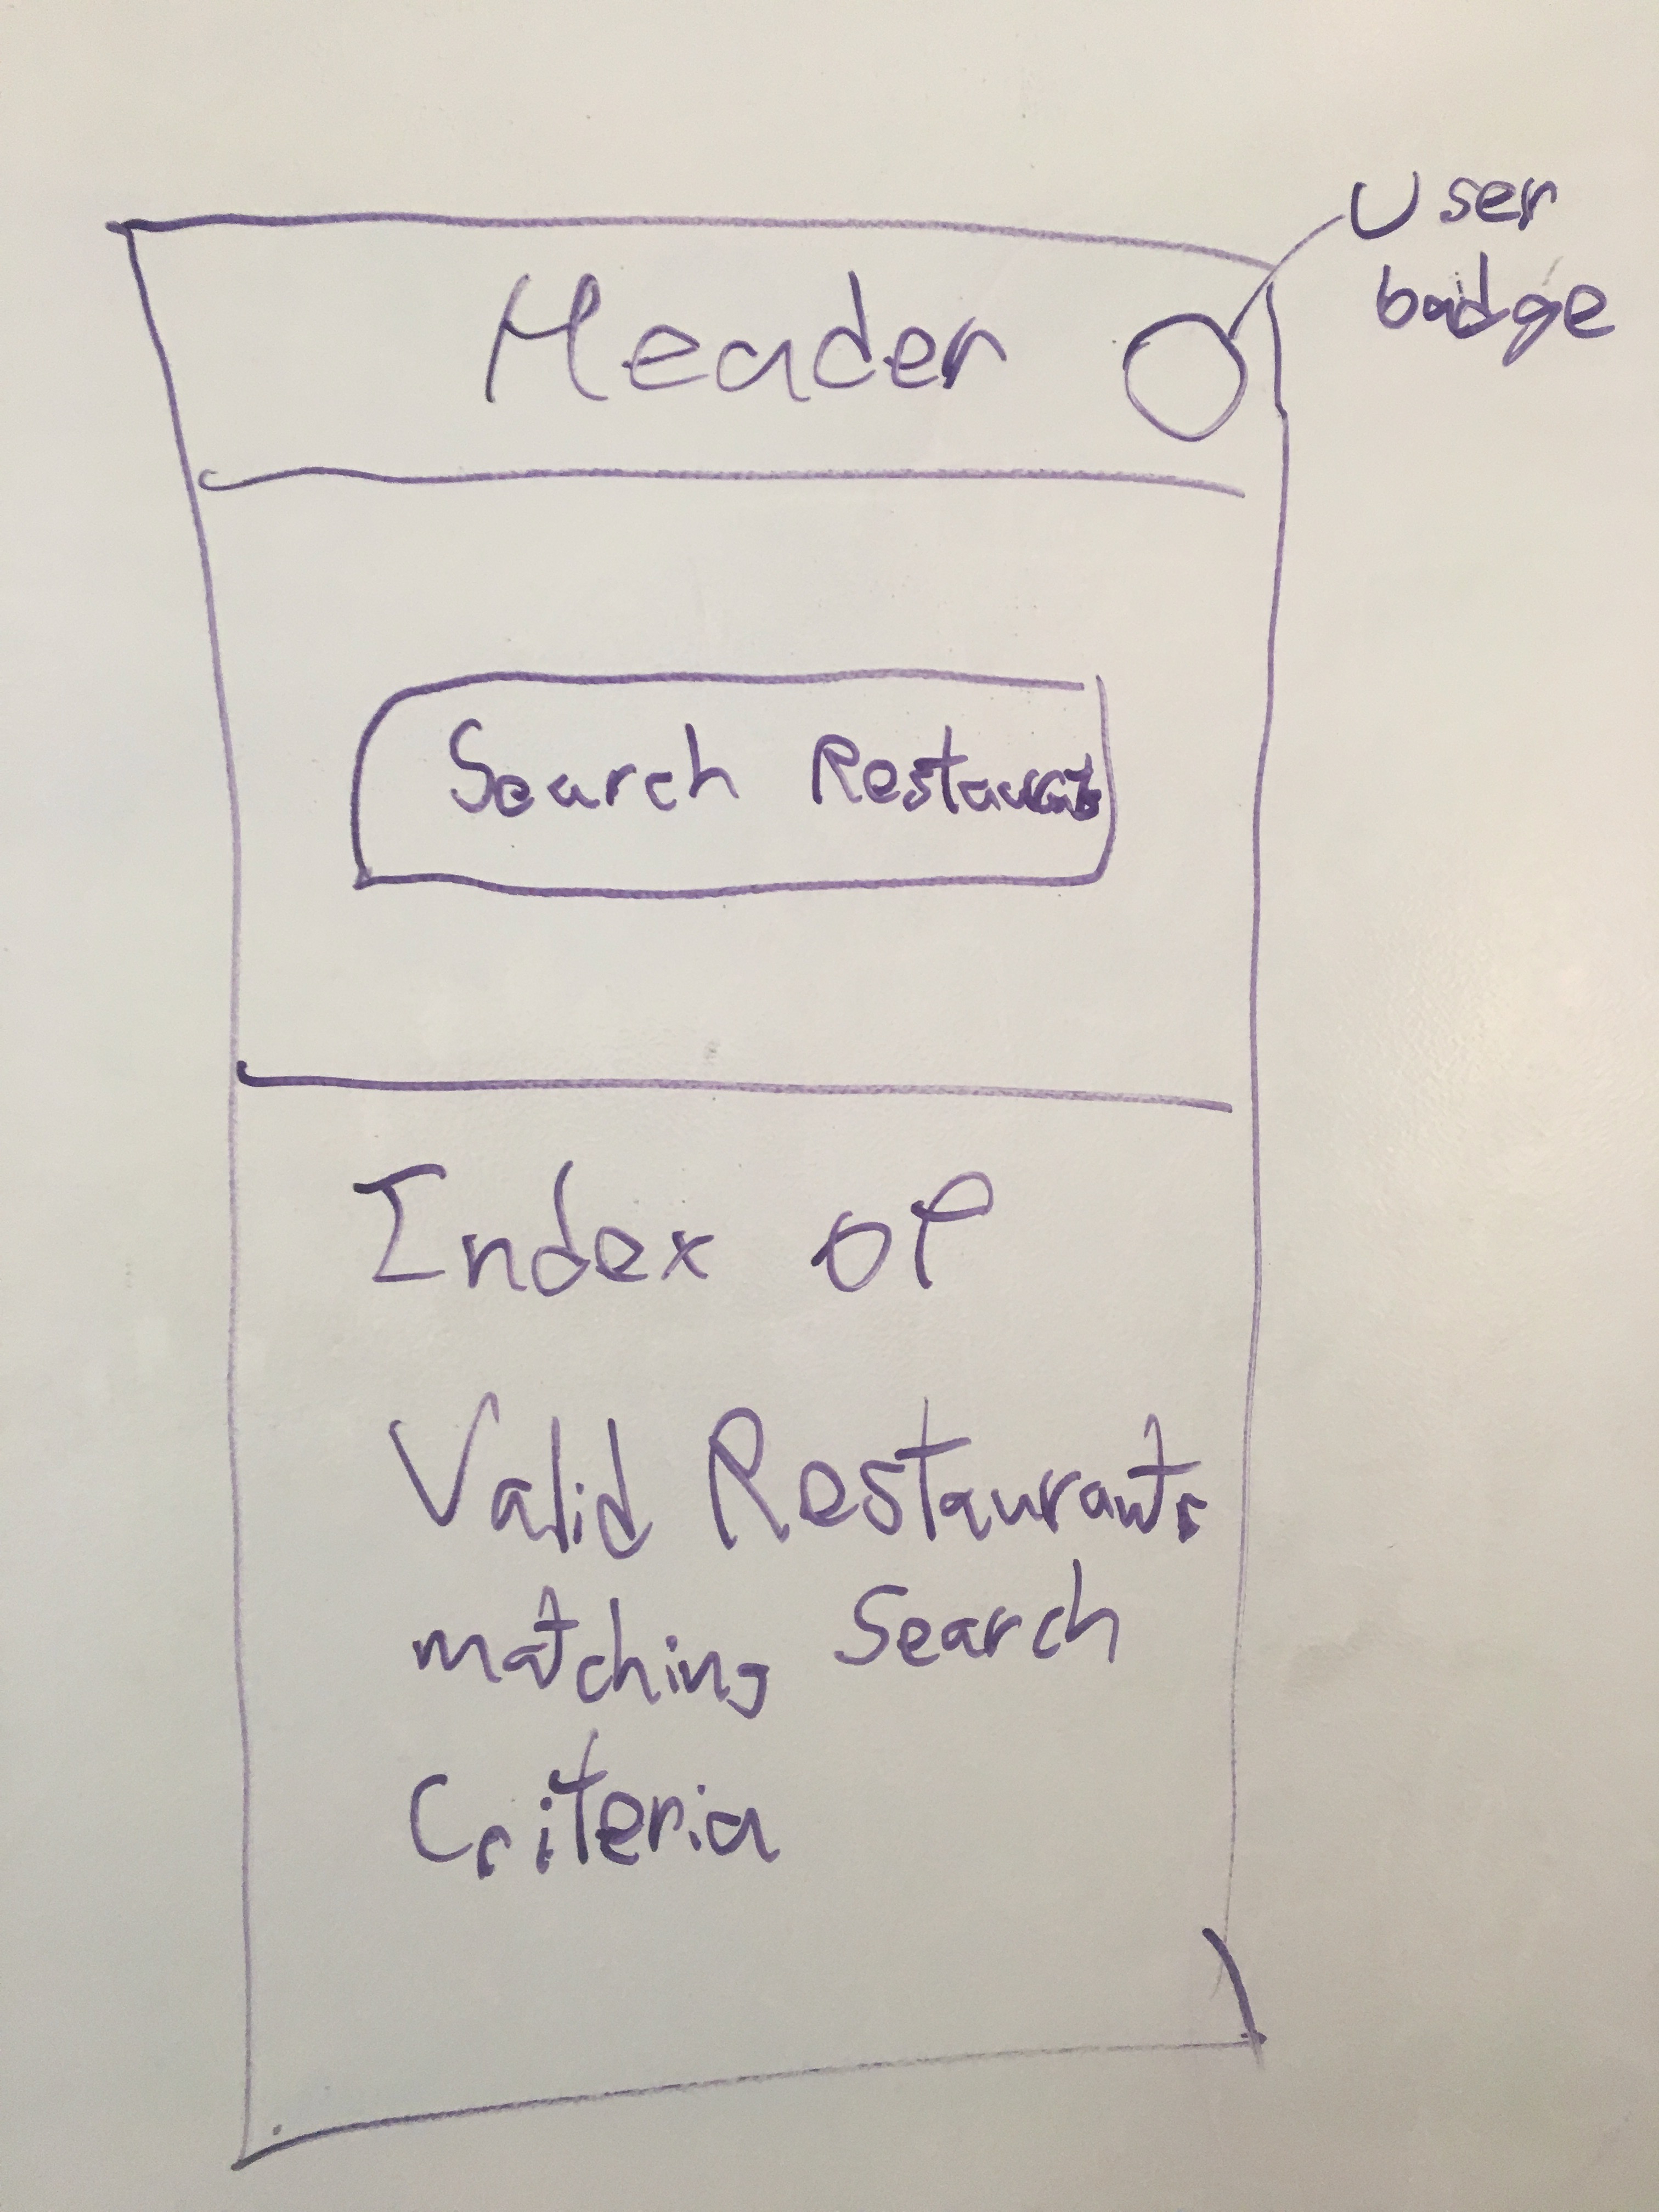 User
badge
Header
Search Restaurant
Index of
Valid Restaurants
matching Search
Criteria